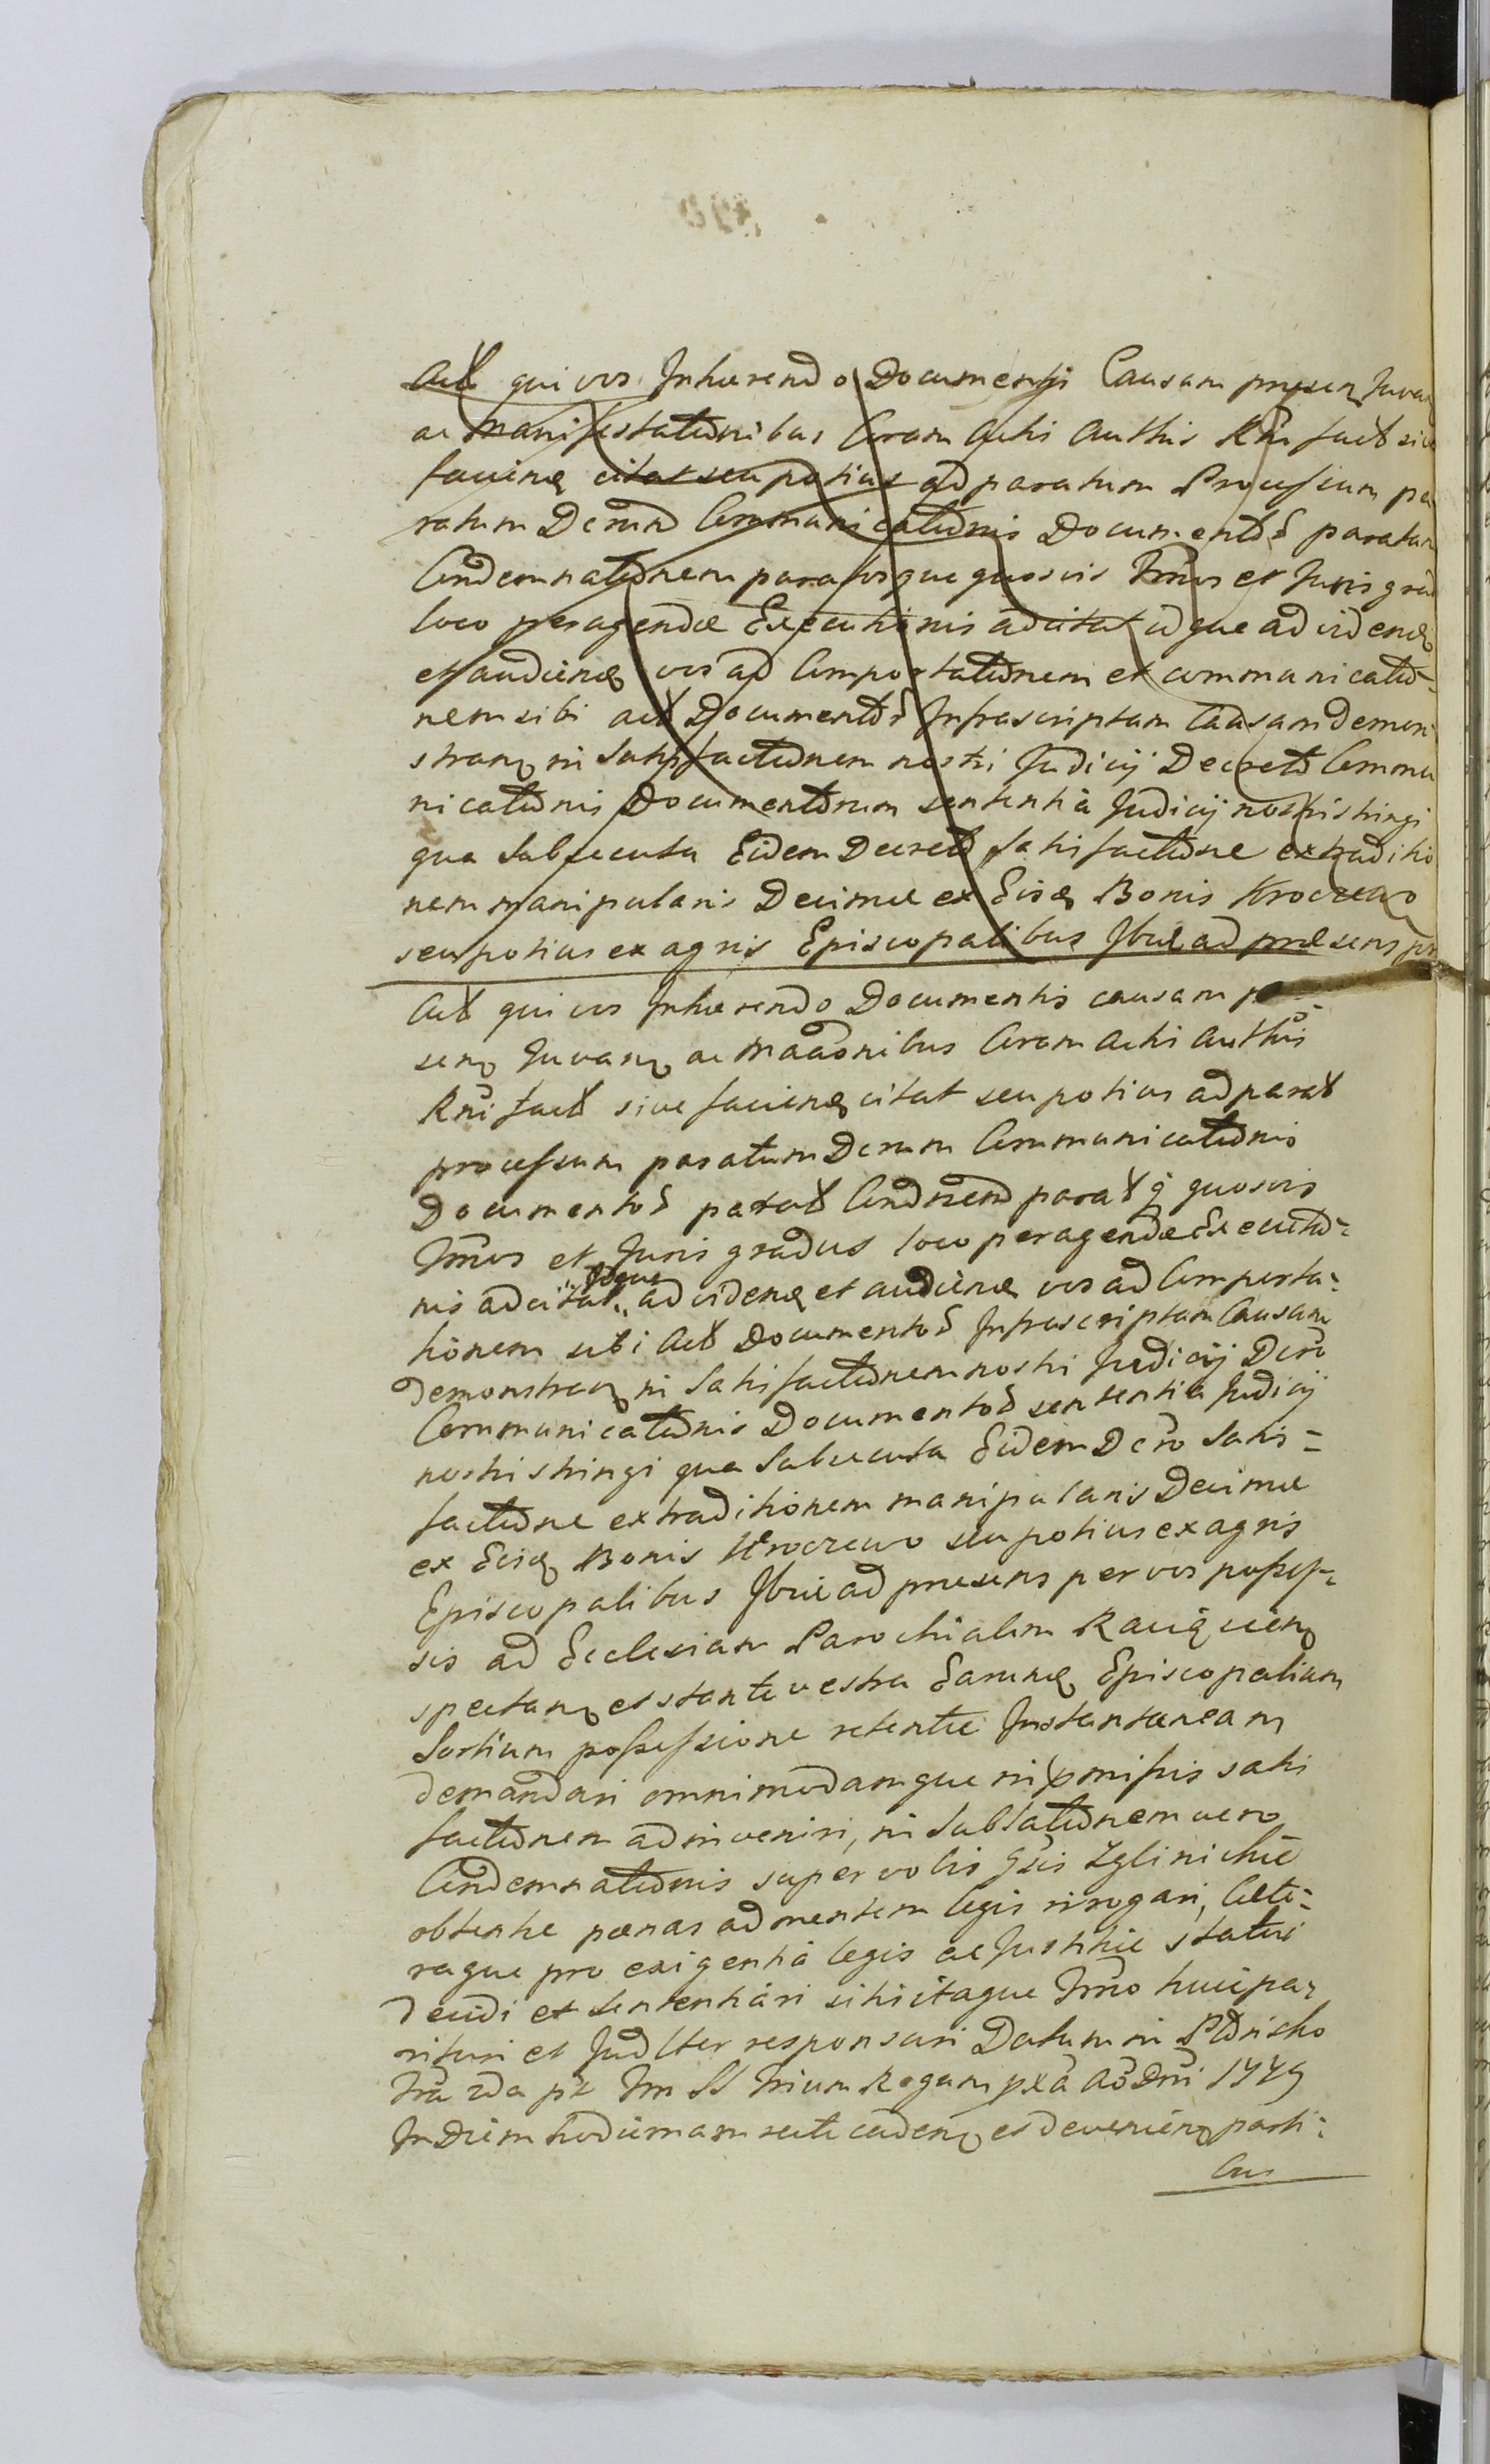 Act qui vos Inhaerendo Documentis Causam praesen Juvan
ac Manifestationibus Coram Actis Authis Rni fact sive
faciend citat seu potius ad paratum Processum pa
ratum Decrum Communicationis Documentor paratam
Condemnationem paratosque quosvis Tmos et Juris grad
loco peragendae Executionis adcitat idque ad videnda
et audienda vos ad Comportationem et communicatio-
nem sibi act Documentor Infrascriptam Causam demon
stran in Satisfactionem nostri Judicij Decreto Commu
nicationis Documentorum sententia Judicij nostri stringi
qua Subsecuta Eidem Decreto Satisfactione extraditio
nem manipularis Decimae ex Eisd Bonis Kroczewo
seu potius ex agris Episcopalibus Ibid ad praesens per
Act qui vos Inhaerendo Documentis causam
sen Juvan ac Maaonibus Coram Actis Authis
Rni fact sive faciend citat seu potius ad parat
processum paratum Decrum Communicationis
Documentor parat Condnem parat q quosvis
Tmos et Juris gradus loco peragendae Executio-
nis adcitat idque ad videnda et audienda vos ad Comporta-
tionem sibi Act Documentor Infrascriptam Causam
demonstran in Satisfactionem nostri Judicij Decro
Communicationis Documentor sententia Judicij
nostri stringi qua Subsecuta Eidem Decro Satis-
factione extraditionem manipularis Decimae
ex Eisd Bonis Kroczewo seu potius ex agris
Episcopalibus Ibid ad praesens per vos posses-
sis ad Ecclesiam Parochialem Raciązien
spectan et stante vestra Earund Episcopalium
Sortium possessione retentae Instantaneam
demandari omnimodamque in praemissis satis
factionem adinveniri, in Sublationem vero
Condemnationis super vobis Gsis Zglinickie
obtentae poenas ad mentem legis irrogari, Caete-
raque pro exigentia legis ac Justitiae statui
decidi et sententiari sitis itaque Tmo huic pa-
rituri et Judlter responsuri Datum in
fra 2da pt Fm SS Trium Regum pxa Ao Dni 1779
In Diem hodiernam recte caden et devenien parti-
bus